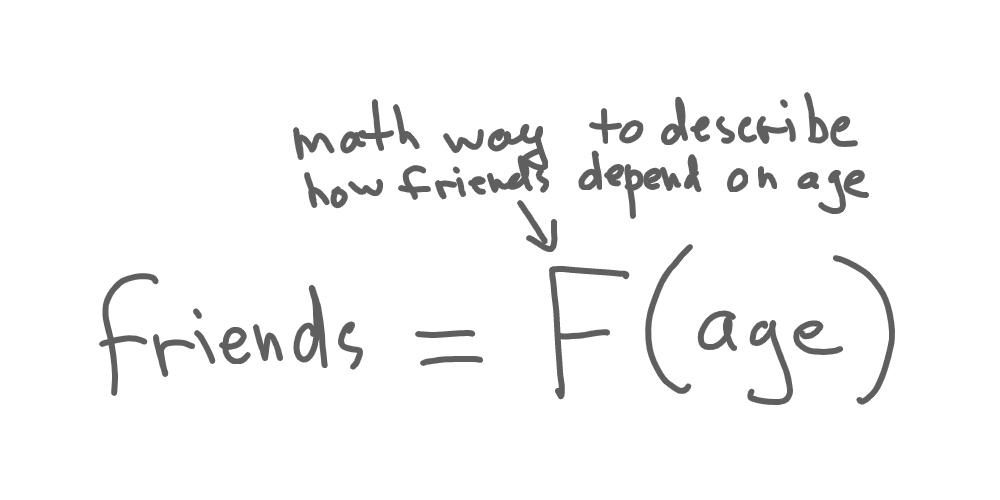 math way to describe
how friends depend on age
friends = F(age)